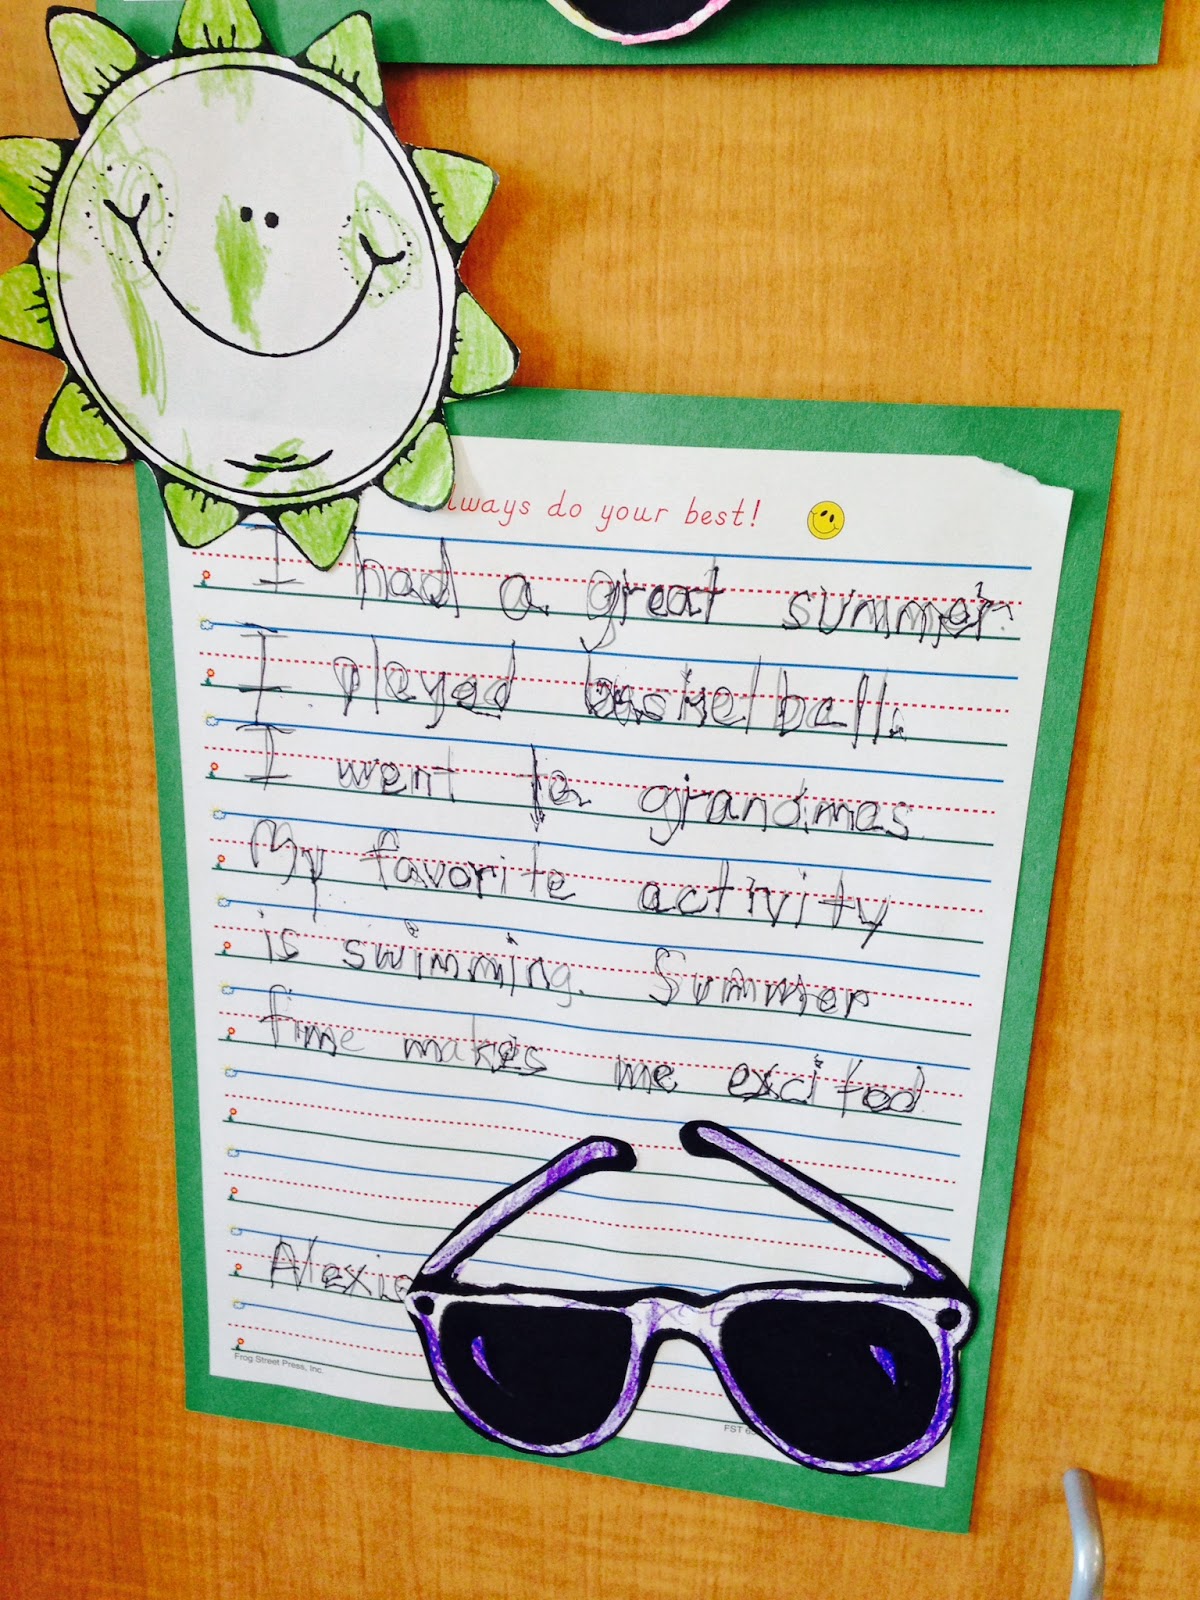 lways do your best!
I had a great summer.
I played basketball.
I went to grandmas
My favorite activity
is swimming. Summer
time makes me excited
Alexie
Frog Street Press, Inc.
FST 6